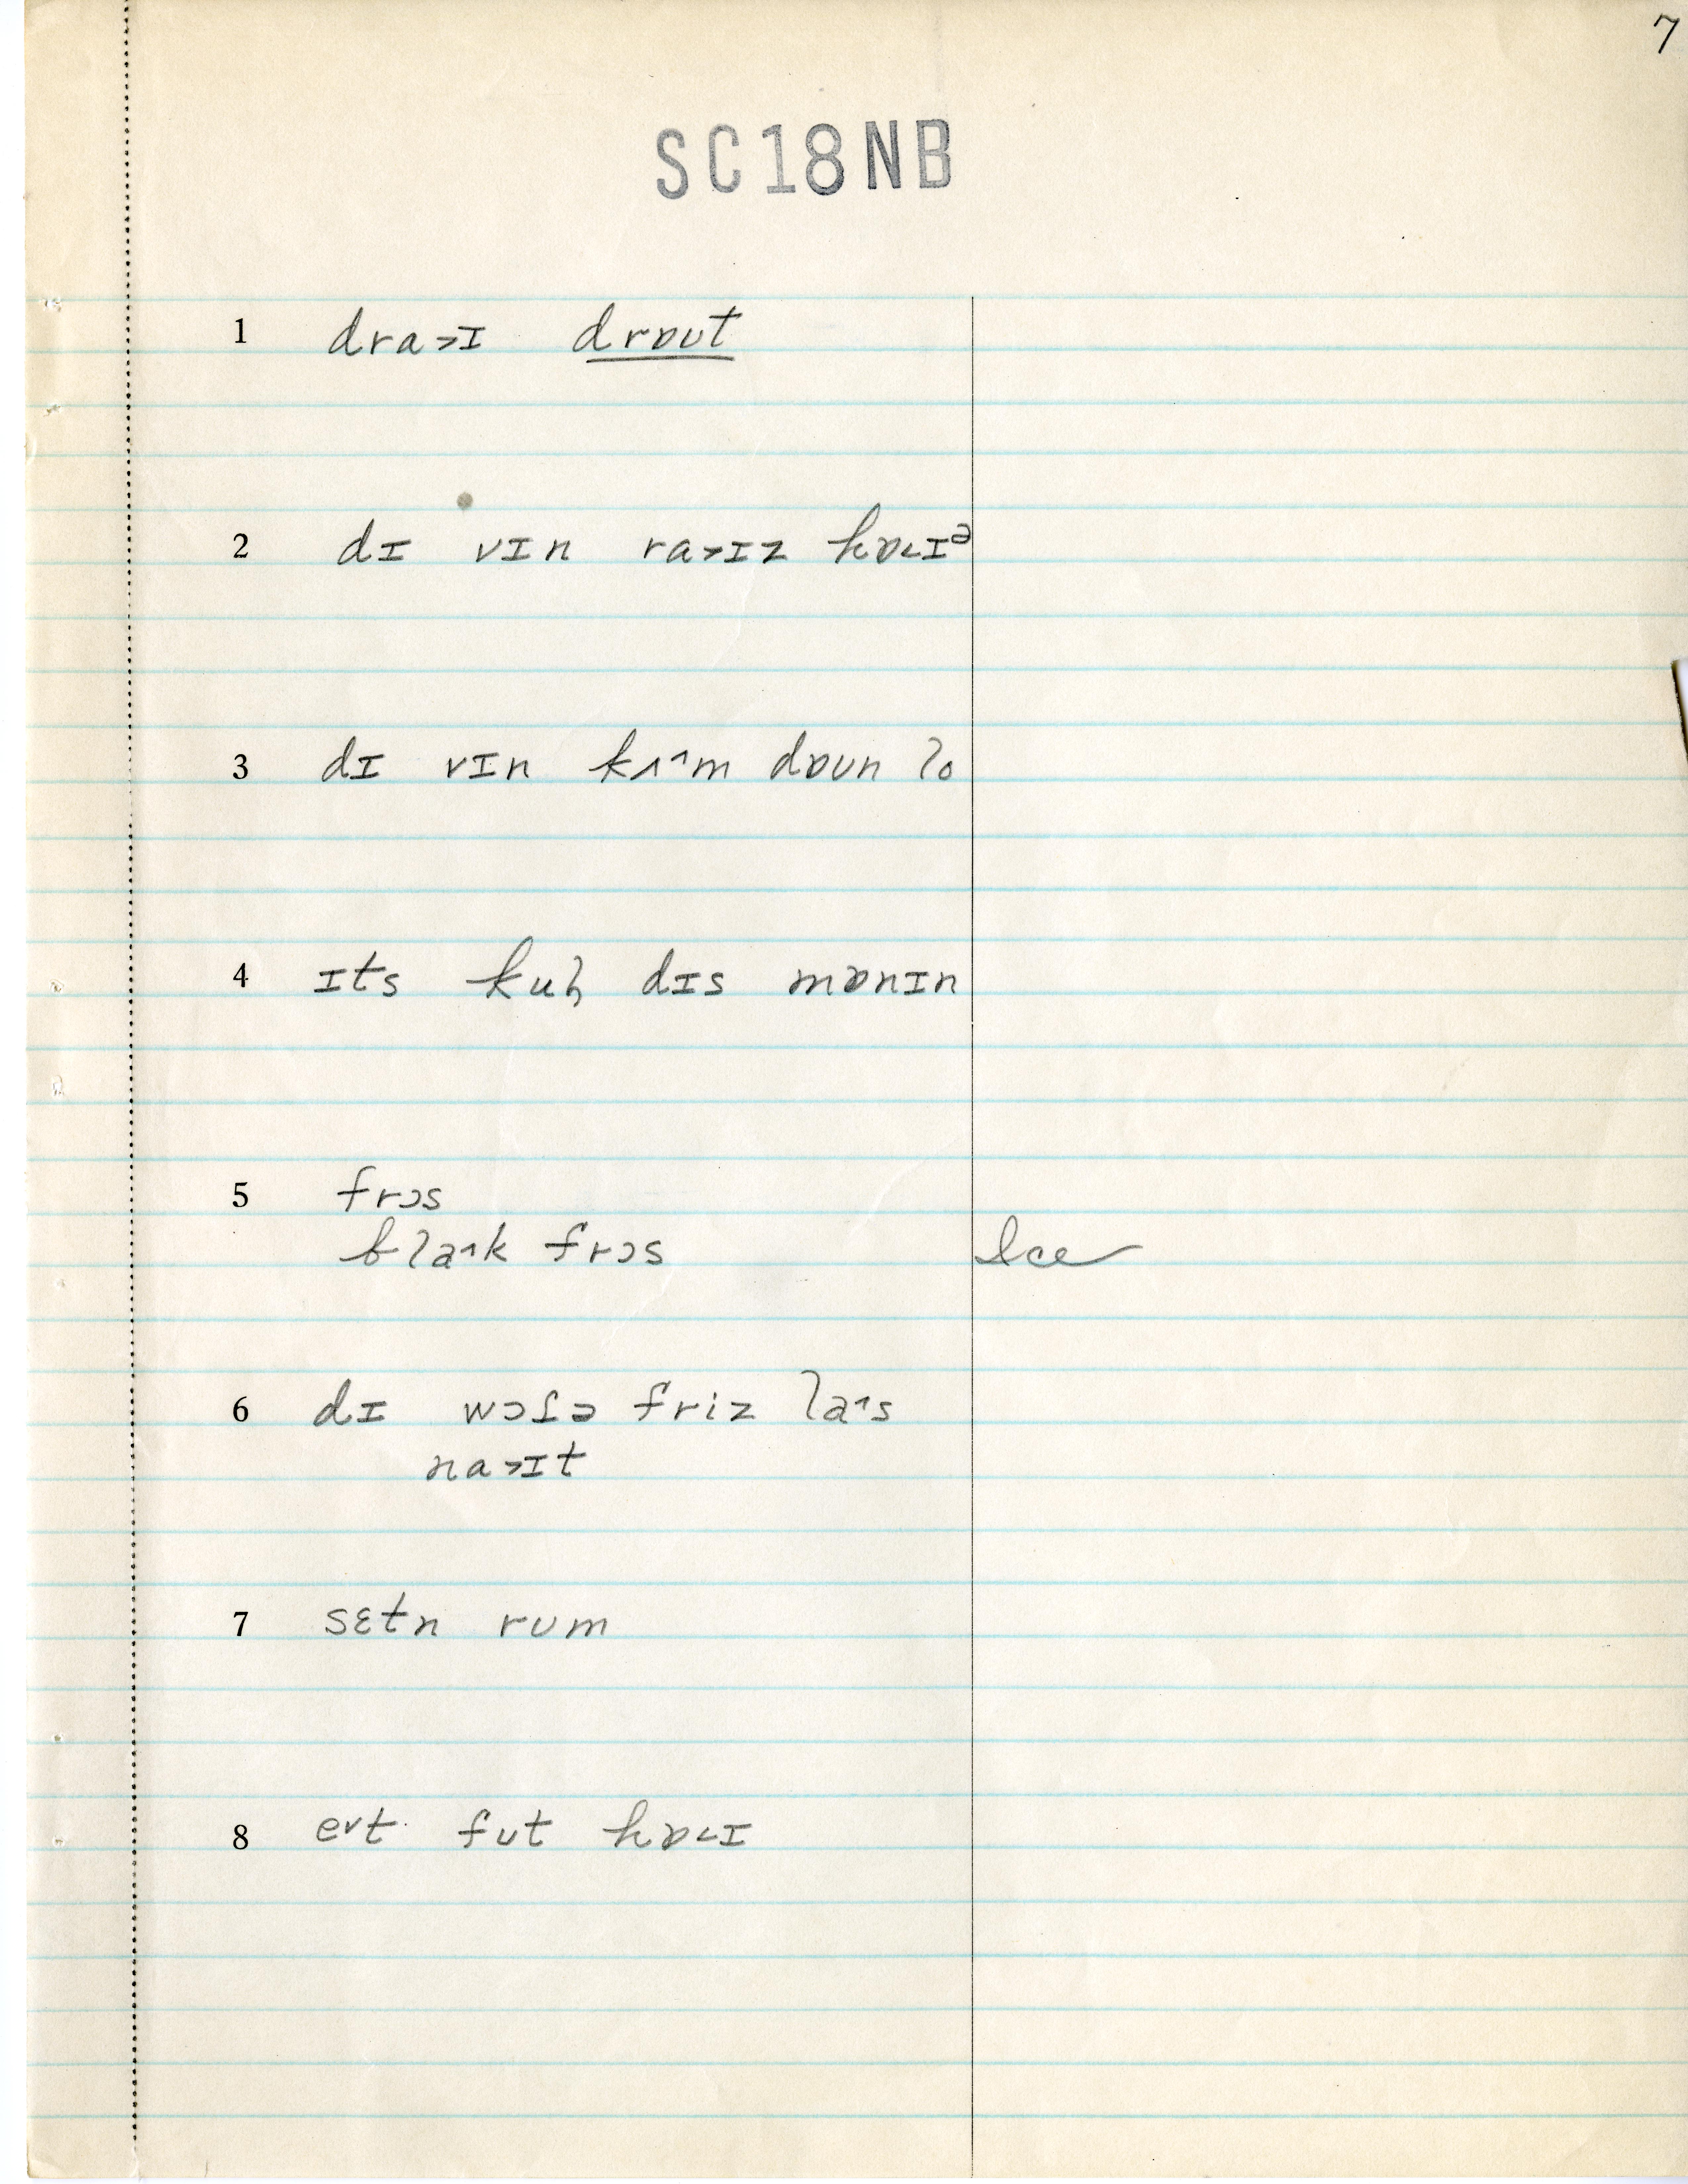 7
SC18NB
1 dra˃ɪ drɒut
2 dɪ vɪn ra˃ɪz hɒ˂ɪᵊ
3 dɪ vɪn kʌ˄m dɒʊn lo
4 ɪts kul dɪs mɒnɪn
5 frɔs
bla˄k frɔs Ice
6 dɪ wɔʃə friz la˄s
na˃ɪt
7 sɛtn rʊm
8 e˅t fʊt hɒ˂ɪ